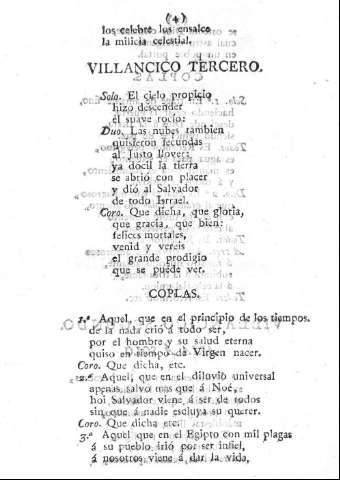 (4)
los celebre los ensalce
la milicia celestial.
VILLANCICO TERCERO.
Solo. El cielo propicio
hizo descender
el suave rocío:
Duo. Las nubes tambien
quisieron fecundas
al Justo llover:
ya docil la tierra
se abrió con placer
y dió al Salvador
de todo Israel.
Coro. Que dicha, que gloria,
que gracia, que bien:
felices mortales,
venid y vereis
el grande prodigio
que se puede ver.
COPLAS.
1.ª Aquel, que en el principio de los tiempos.
de la nada crió á todo ser,
por el hombre y su salud eterna
quiso en tiempo de Virgen nacer.
Coro. Que dicha, etc.
2.ª Aquel, que en el diluvio universal
apenas salvo mas que á Noé,
hoi Salvador viene á ser de todos
sin que á nadie escluya su querer.
Coro. Que dicha etc.
3.ª Aquel que en el Egipto con mil plagas
á su pueblo irió por ser infiel,
á nosotros viene á dar la vida,